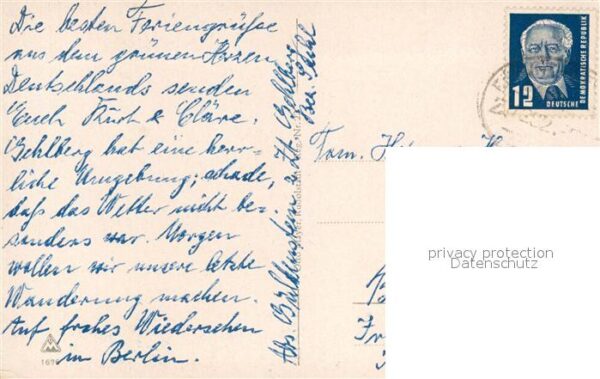 Die besten Feriengrüße
aus dem grünen Herzen
Deutschlands senden
Euch Kurt & Cläre.
Gehlberg hat eine herr-
liche Umgebung; schade,
daß das Wetter nicht be-
sonders war. Morgen
wollen wir unsere letzte
Wanderung machen.
Auf frohes Wiedersehen
in Berlin.
z. Zt. Gehlberg
Fam. H
12
DEUTSCHE
DEMOKRATISCHE REPUBLIK
privacy protection
Datenschutz